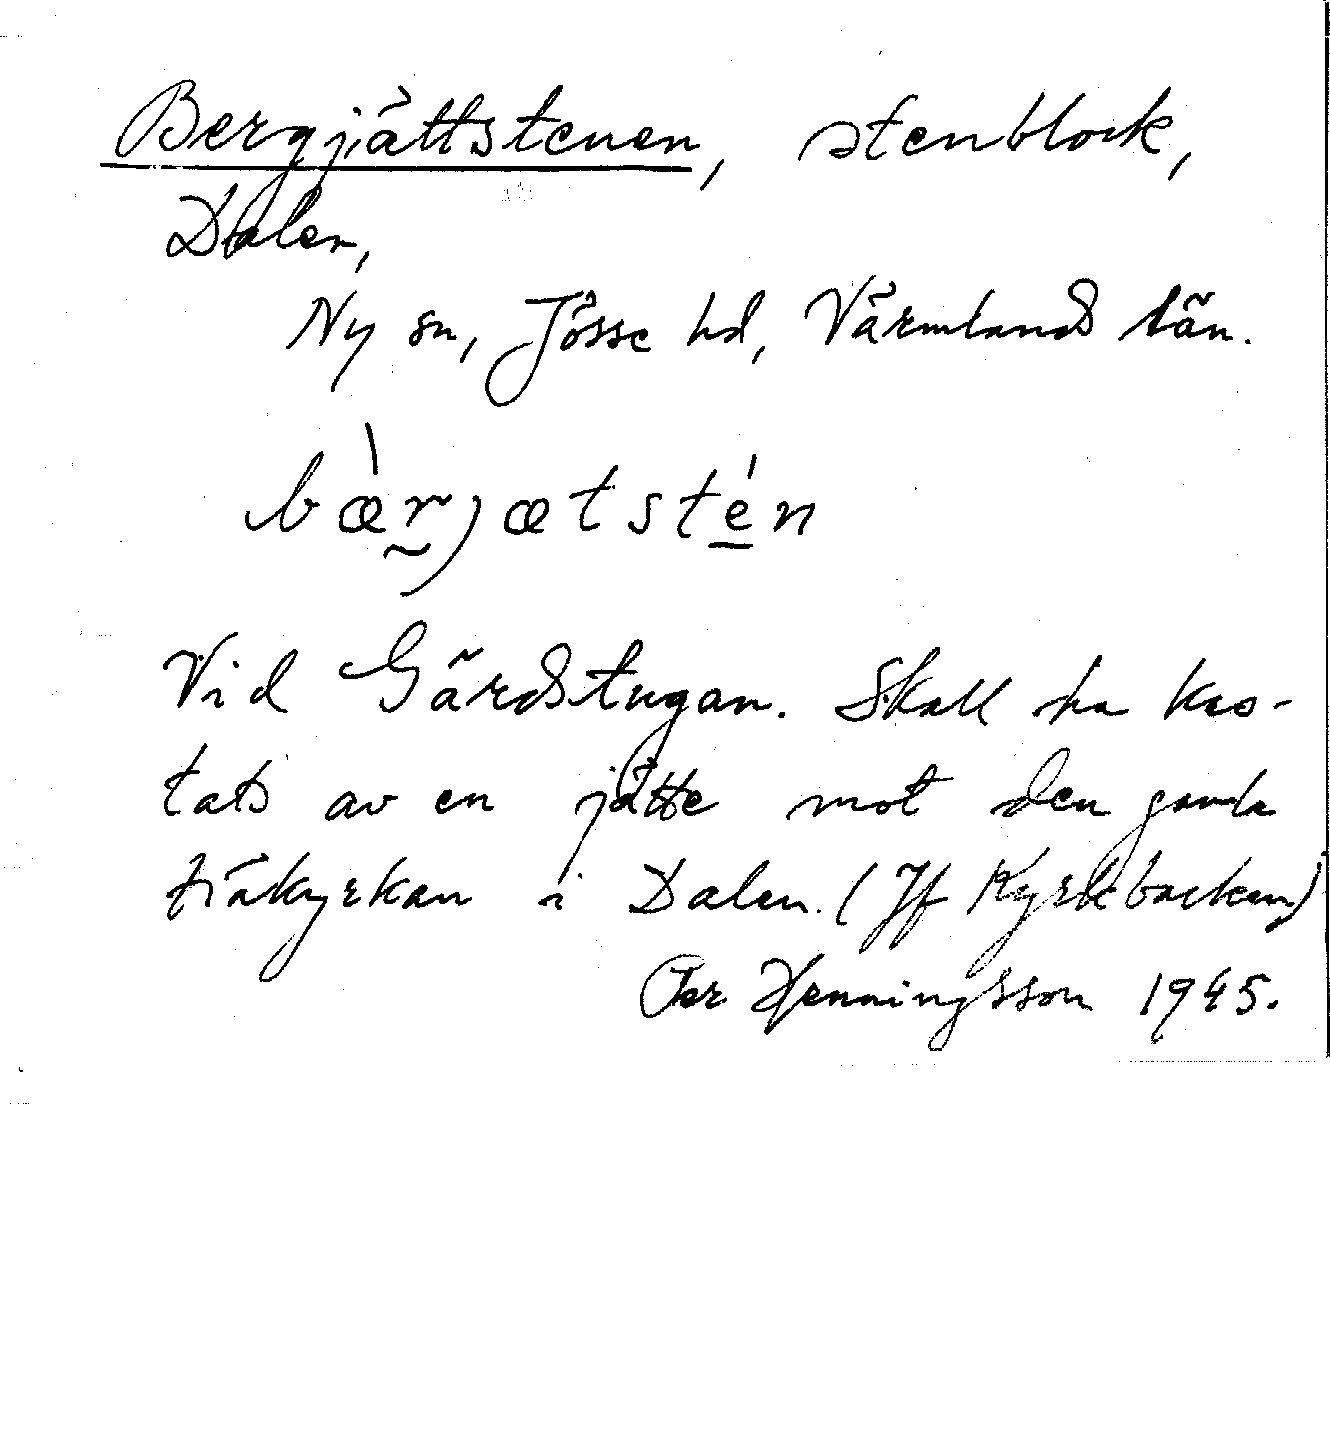 Bergjättstenen, stenblock,
Dalen,
Ny sn, Jösse hd, Värmlands län.
bæ̀r̰jætsté̱n
Vid Gärdstugan. Skall ha kas-
tats av en jätte mot den gamla
träkyrkan i Dalen. (Jf Kyrkbacken)
Per Henningsson 1945.